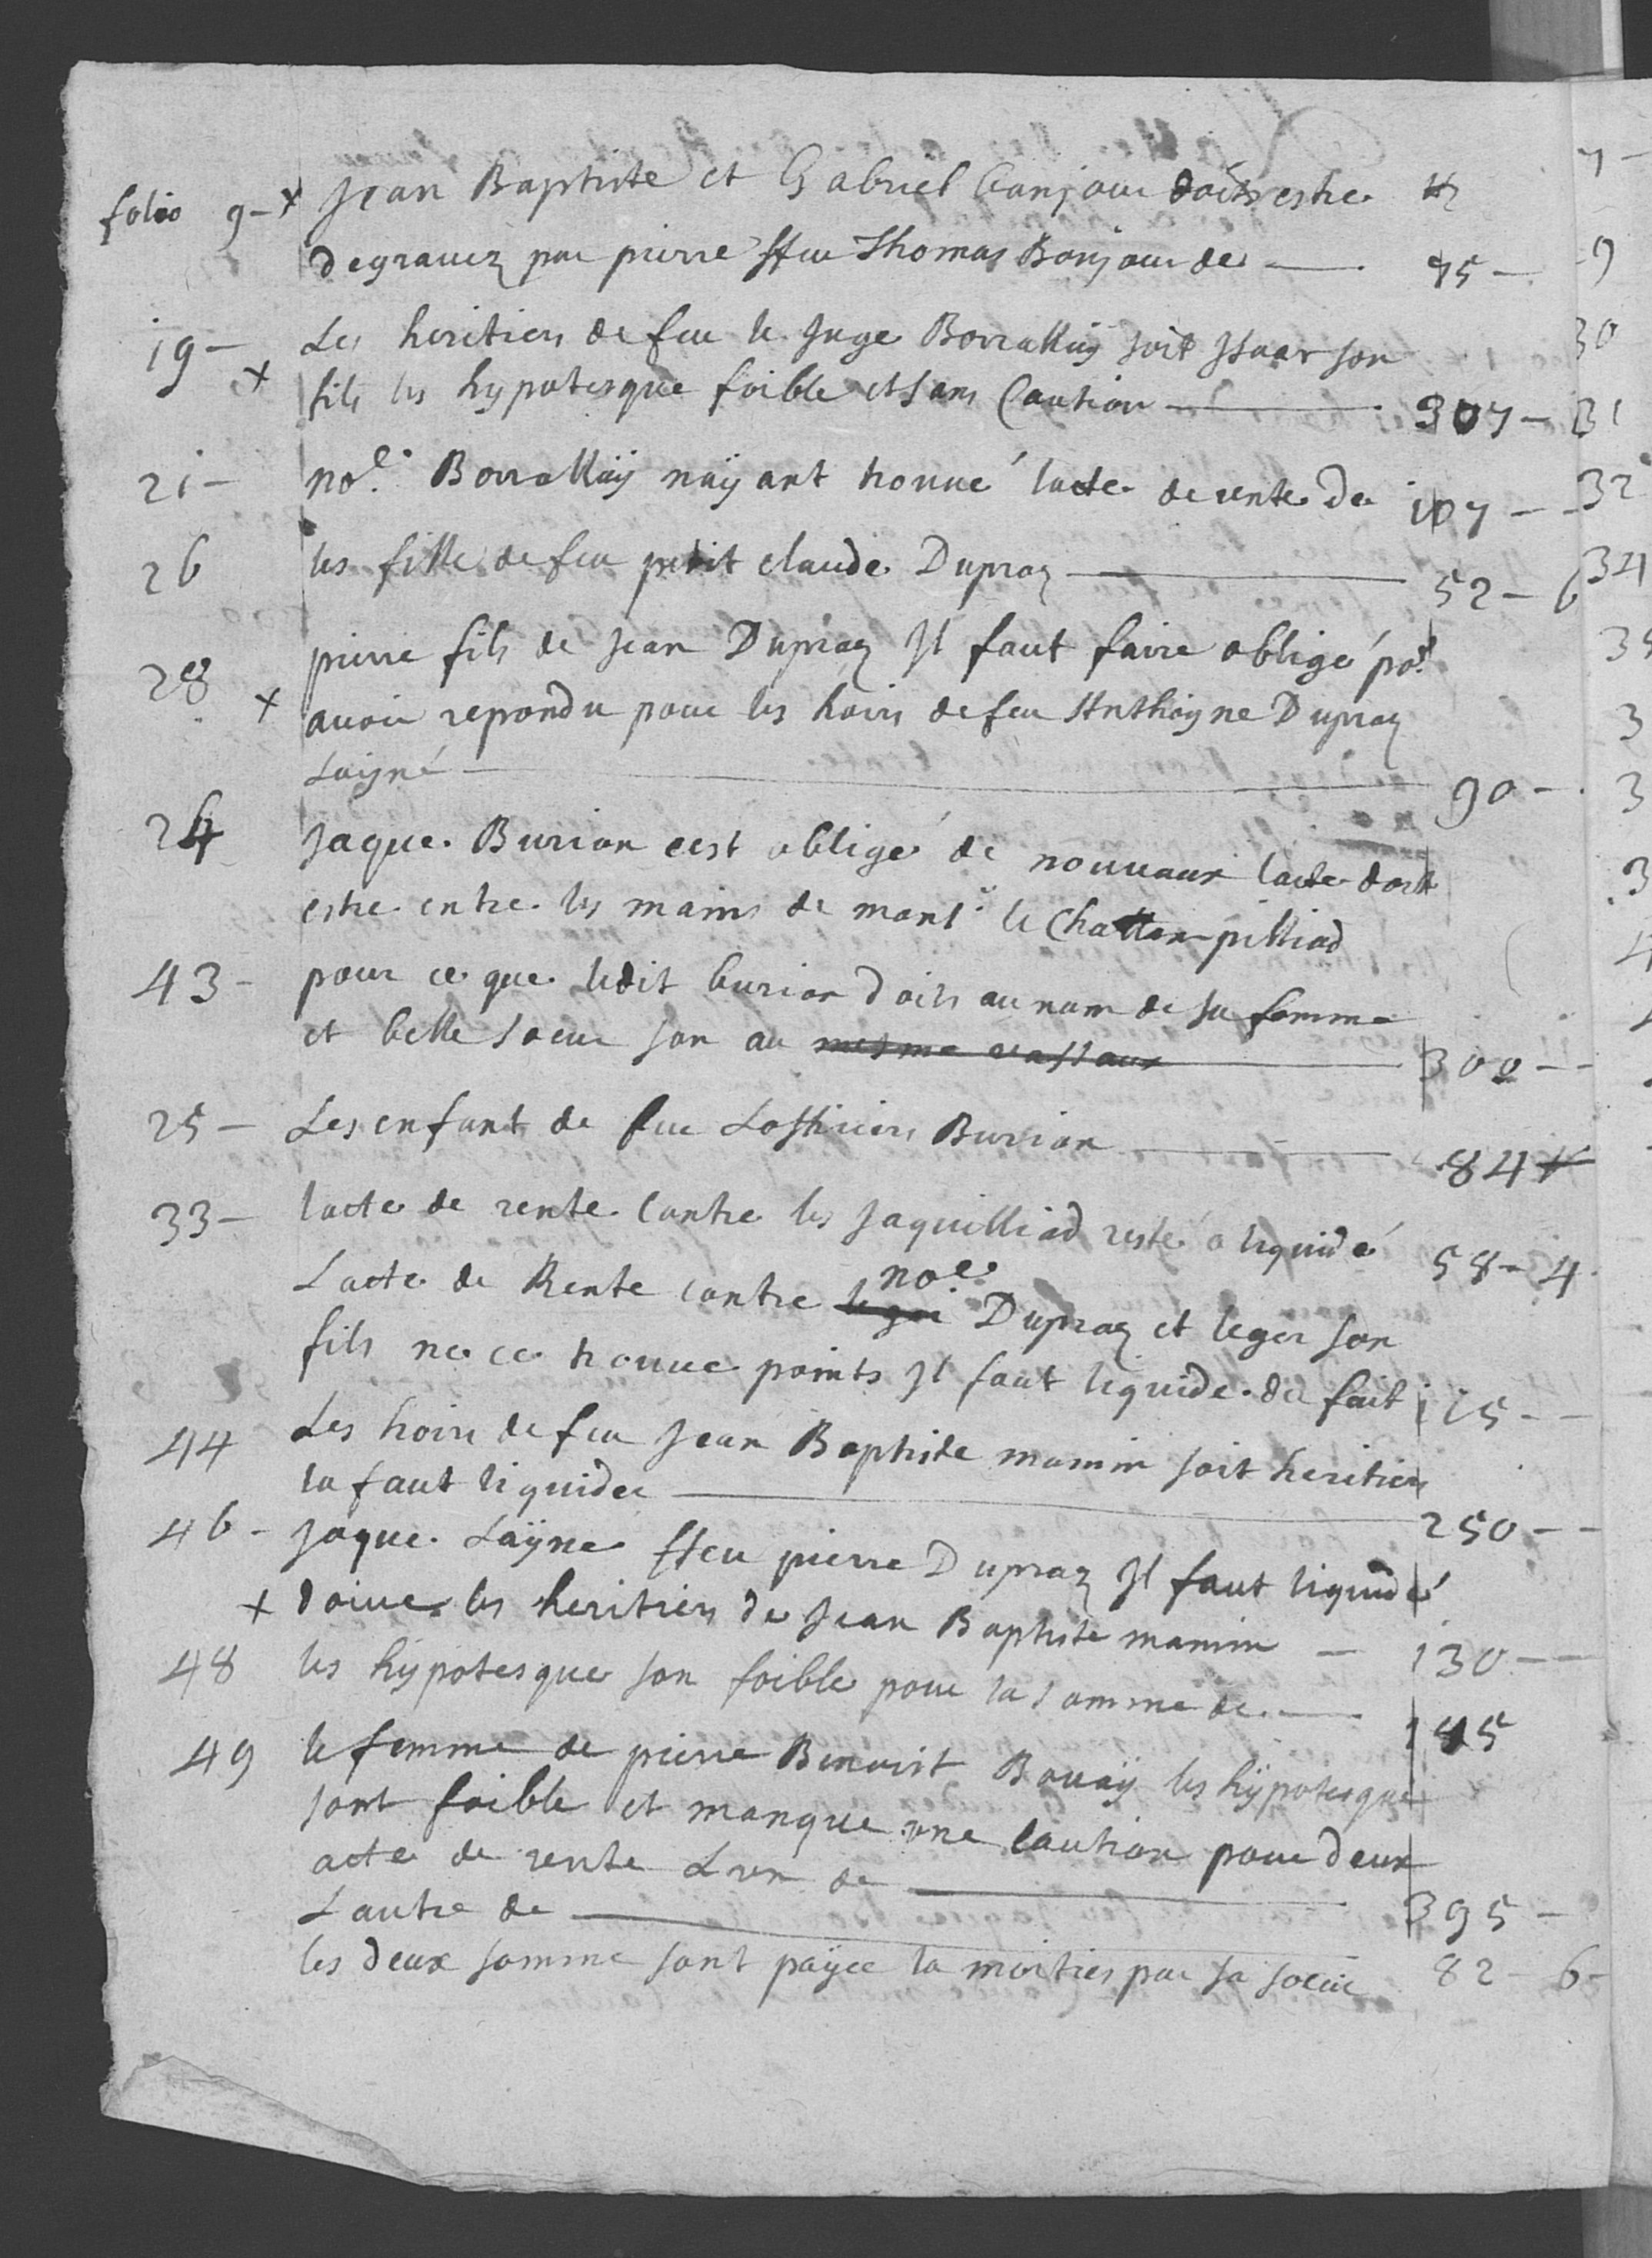 folio 9 - x Jean Baptiste et Gabriel bonjour doits estre
degrauez par pierre ffeu Thomas Bonjour de — 75 —
19 - Les heritiers de feu le Juge Borcallaÿ soit Isaac son
x fils les hypotesque foible et sans Caution — 307 —
21 - no.e Borcallaÿ naÿant trouué lacte de rente de 107 —
26 les fille de feu petit claude Dupraz — 52 - 6
pierre fils de Jean Dupraz Il faut faire obligé po.r
28 x auoir repondu pour les hoirs de feu Anthoyne Dupraz
Laigné — 90 —
24 Jaque Burion cest obligé de nouuaux lacte doit
estre entre les mains de mons.r le Chatlan pilliod
43 - pour ce que ledit burion doits au nom de sa femme
et belle soeur son au mesme vassaux 300 —
25 - Les enfant de feu Burion — 84
33 - lacte de rente contre les Jaquilliod resté a liquidé 58 - 4
Lacte de Rente contre no.e Dupraz et leger son
fils ne ce trouue points Il faut liquide de fait 115 —
44 Les hoirs de feu Jean Baptiste mamin soit heritiers
la faut liquider — 250 —
46 - Jaque Laÿne ffeu pierre Dupraz Il faut liquidé
x doiue les heritiers de Jean Baptiste mamin — 130 —
48 les hypotesque son foible pour la somme de — 145
49 le femme de pierre Benoist Bouaÿ les hÿpotesque
sont foible et manque une caution pour deux
acte de rente Lun de — 395 —
Lautre de — 82 - 6 -
les deux somme sont payée la moities par sa soeur